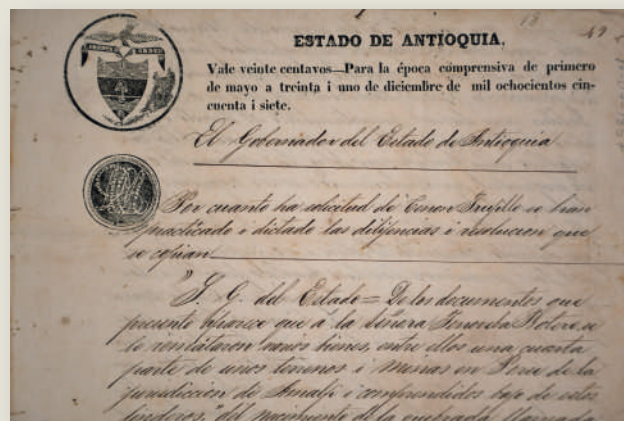 ESTADO DE ANTIOQUIA.
Vale veinte centavos—Para la época comprensiva de primero
de mayo a treinta i uno de diciembre de mil ochocientos cin-
cuenta i siete.
El Gobernador del Estado de Antioquia
Por cuanto ha solicitud de Trujillo se han
practicado i dictado las dilijencias i resolucion que
se copian
"S. G. del Estado= De los documentos que
presento aparece que á la Señora Botero se
le remataron varios bienes, entre ellos una cuarta
parte de unos terrenos i minas en Porce de la
jurisdiccion de Amalfi i comprendidos bajo de estos
linderos, "del nacimiento de la quebrada llamada